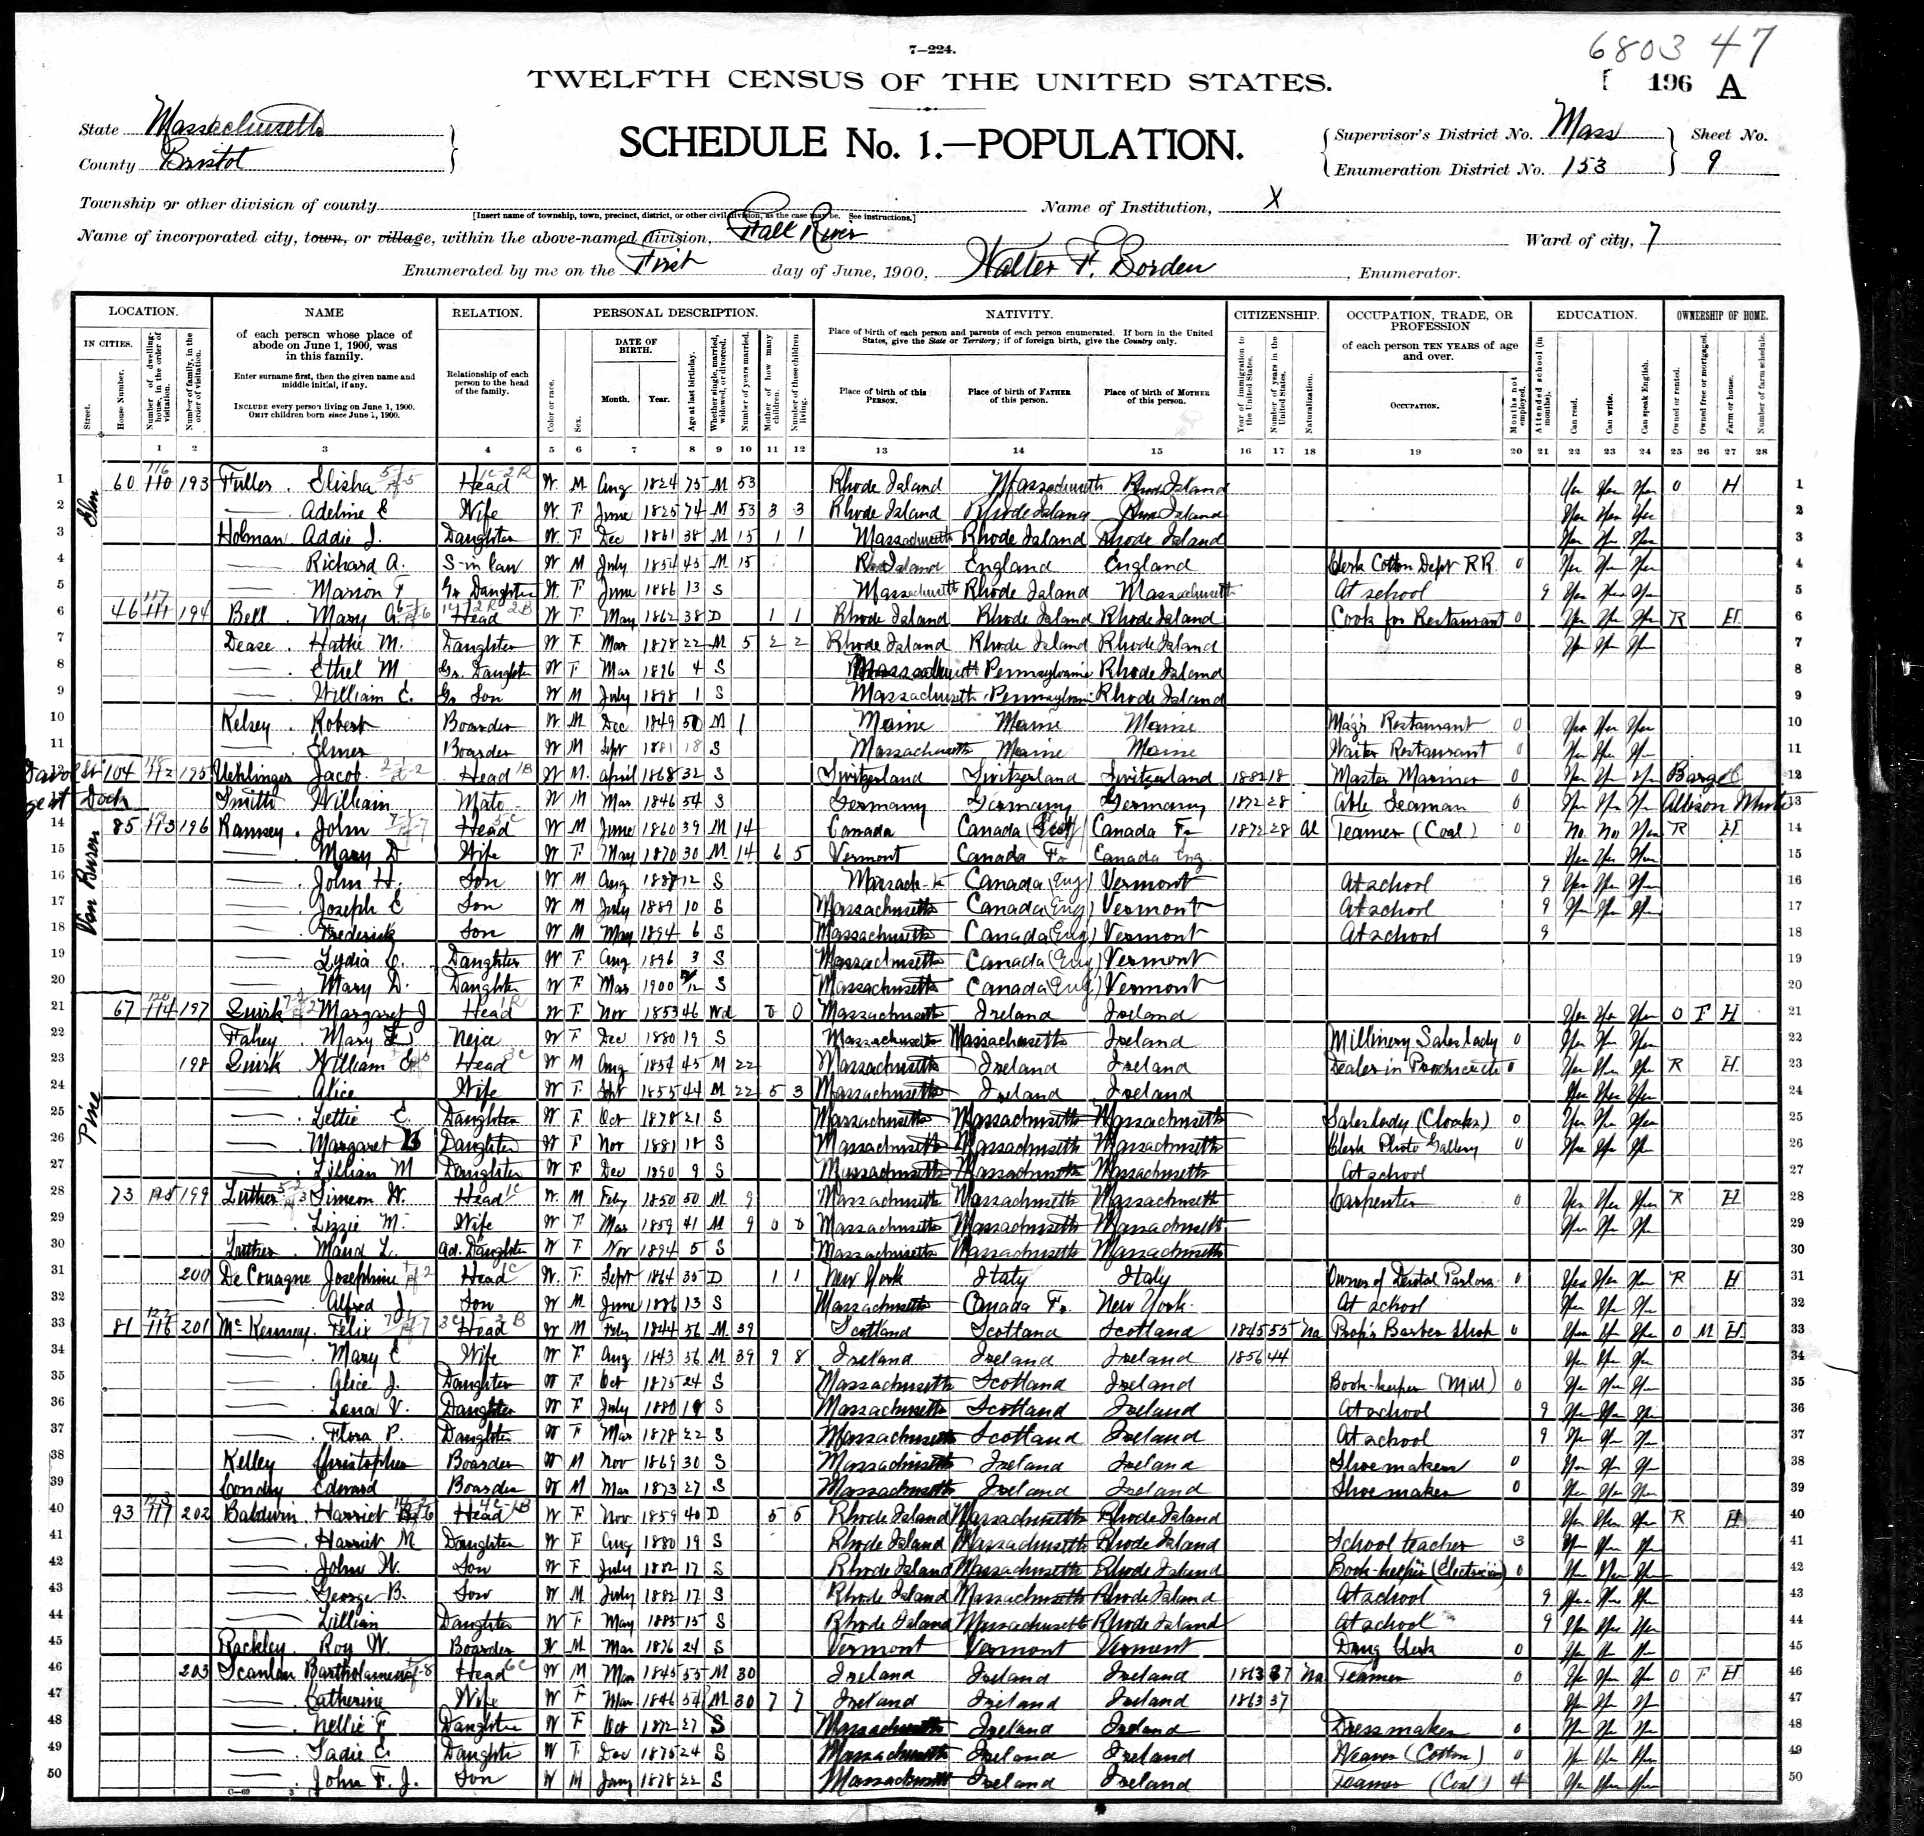 7—224.
6803 47
TWELFTH CENSUS OF THE UNITED STATES.
196 A
State Massachusetts
County Bristol
SCHEDULE No. 1.—POPULATION.
Supervisor's District No. Mass
Enumeration District No. 153
Sheet No.
9
Township or other division of county
[Insert name of township, town, precinct, district, or other civil division, as the case may be. See instructions.]
Name of Institution, X
Name of incorporated city, town, or village, within the above-named division, Fall River
Ward of city, 7
Enumerated by me on the First day of June, 1900, Walter F. Borden, Enumerator.
LOCATION. NAME RELATION. PERSONAL DESCRIPTION. NATIVITY. CITIZENSHIP. OCCUPATION, TRADE, OR PROFESSION EDUCATION. OWNERSHIP OF HOME.
IN CITIES.
Street.
House Number.
Number of dwelling-house, in the order of visitation.
Number of family, in the order of visitation.
of each person whose place of abode on June 1, 1900, was in this family.
Enter surname first, then the given name and middle initial, if any.
INCLUDE every person living on June 1, 1900.
OMIT children born since June 1, 1900.
Relationship of each person to the head of the family.
Color or race.
Sex.
DATE OF BIRTH.
Month. Year.
Age at last birthday.
Whether single, married, widowed, or divorced.
Number of years married.
Mother of how many children.
Number of these children living.
Place of birth of each person and parents of each person enumerated. If born in the United States, give the State or Territory; if of foreign birth, give the Country only.
Place of birth of this PERSON.
Place of birth of FATHER of this person.
Place of birth of MOTHER of this person.
Year of immigration to the United States.
Number of years in the United States.
Naturalization.
of each person TEN YEARS of age and over.
OCCUPATION.
Months not employed.
Attended school (in months).
Can read.
Can write.
Can speak English.
Owned or rented.
Owned free or mortgaged.
Farm or house.
Number of farm schedule.
1 2 3 4 5 6 7 8 9 10 11 12 13 14 15 16 17 18 19 20 21 22 23 24 25 26 27 28
Elm
1 60 116 110 193 Fuller Elisha Head W M Aug 1824 75 M 53 Rhode Island Massachusetts Rhode Island Yes Yes Yes O H 1
2 Adeline E Wife W F June 1825 74 M 53 3 3 Rhode Island Rhode Island Rhode Island Yes Yes Yes 2
3 Holman Addie J. Daughter W F Dec 1861 38 M 15 1 1 Massachusetts Rhode Island Rhode Island Yes Yes Yes 3
4 Richard A. S-in law W M July 1854 45 M 15 Rhode Island England England Clerk Cotton Dept RR 0 Yes Yes Yes 4
5 Marion F Gr Daughter W F June 1886 13 S Massachusetts Rhode Island Massachusetts At school 9 Yes Yes Yes 5
6 46 117 111 194 Bell Mary A. Head W F May 1862 38 D 1 1 Rhode Island Rhode Island Rhode Island Cook for Restaurant 0 Yes Yes Yes R H 6
7 Dease Hattie M. Daughter W F Mar 1878 22 M 5 2 2 Rhode Island Rhode Island Rhode Island Yes Yes Yes 7
8 Ethel M Gr. Daughter W F Mar 1896 4 S Massachusetts Pennsylvania Rhode Island 8
9 William E. Gr Son W M July 1898 1 S Massachusetts Pennsylvania Rhode Island 9
10 Kelsey Robert Boarder W M Dec 1849 50 M 1 Maine Maine Maine Mag'r Restaurant 0 Yes Yes Yes 10
11 Elmer Boarder W M Sept 1881 18 S Massachusetts Maine Maine Waiter Restaurant 0 Yes Yes Yes 11
12 104 112 195 Uehlinger Jacob Head W M April 1868 32 S Switzerland Switzerland Switzerland 1882 18 Master Mariner 0 Yes Yes Yes Barge 12
Dock Smith William Mate W M Mar 1846 54 S Germany Germany Germany 1872 28 Able Seaman 0 Yes Yes Yes Allison White 13
Van Buren
14 85 113 196 Ramsey John Head W M June 1860 39 M 14 Canada Canada Canada Fr 1872 28 Al Teamer (Coal) 0 No No Yes R H 14
15 Mary D Wife W F May 1870 30 M 14 6 5 Vermont Canada Fr Canada Eng Yes Yes Yes 15
16 John H. Son W M Aug 1887 12 S Massach Canada (Eng) Vermont At school 9 Yes Yes Yes 16
17 Joseph E Son W M July 1889 10 S Massachusetts Canada (Eng) Vermont At school 9 Yes Yes Yes 17
18 Frederick Son W M May 1894 6 S Massachusetts Canada (Eng) Vermont At school 9 18
19 Lydia C. Daughter W F Aug 1896 3 S Massachusetts Canada (Eng) Vermont 19
20 Mary D. Daughter W F Mar 1900 2/12 S Massachusetts Canada (Eng) Vermont 20
Pine
21 67 114 197 Quirk Margaret J Head W F Nov 1853 46 Wd 0 0 Massachusetts Ireland Ireland Yes Yes Yes O F H 21
22 Fahey Mary E Neice W F Dec 1880 19 S Massachusetts Massachusetts Ireland Millinery Saleslady 0 Yes Yes Yes 22
23 198 Quirk William Head W M Aug 1854 45 M 22 Massachusetts Ireland Ireland Dealer in 0 Yes Yes Yes R H 23
24 Alice Wife W F Sept 1855 44 M 22 5 3 Massachusetts Ireland Ireland Yes Yes Yes 24
25 Lettie C. Daughter W F Oct 1878 21 S Massachusetts Massachusetts Massachusetts Saleslady (Cloaks) 0 Yes Yes Yes 25
26 Margaret B Daughter W F Nov 1881 18 S Massachusetts Massachusetts Massachusetts Clerk Photo Gallery 0 Yes Yes Yes 26
27 Lillian M Daughter W F Dec 1890 9 S Massachusetts Massachusetts Massachusetts At school 27
28 73 115 199 Luther Simeon W. Head W M Feby 1850 50 M 9 Massachusetts Massachusetts Massachusetts Carpenter 0 Yes Yes Yes R H 28
29 Lizzie M. Wife W F Mar 1859 41 M 9 0 0 Massachusetts Massachusetts Massachusetts Yes Yes Yes 29
30 Luther Maud L. Ad. Daughter W F Nov 1894 5 S Massachusetts Massachusetts Massachusetts 30
31 200 De Couagne Josephine Head W F Sept 1864 35 D 1 1 New York Italy Italy Owner of Dental Parlors 0 Yes Yes Yes R H 31
32 Alfred J. Son W M June 1886 13 S Massachusetts Canada Fr. New York At school Yes Yes Yes 32
33 81 116 201 McKenney Felix Head W M Feby 1844 56 M 39 Scotland Scotland Scotland 1845 55 Na Prop'r Barber Shop 0 Yes Yes Yes O M H 33
34 Mary E Wife W F Aug 1843 56 M 39 9 8 Ireland Ireland Ireland 1856 44 Yes Yes Yes 34
35 Alice J. Daughter W F Oct 1875 24 S Massachusetts Scotland Ireland Book-keeper (Mill) 0 Yes Yes Yes 35
36 Lena V. Daughter W F July 1880 19 S Massachusetts Scotland Ireland At school 9 Yes Yes Yes 36
37 Flora P. Daughter W F Mar 1878 22 S Massachusetts Scotland Ireland At school 9 Yes Yes Yes 37
38 Kelley Christopher Boarder W M Nov 1869 30 S Massachusetts Ireland Ireland Shoemaker 0 Yes Yes Yes 38
39 Condry Edward Boarder W M Mar 1873 27 S Massachusetts Ireland Ireland Shoemaker 0 Yes Yes Yes 39
40 93 117 202 Baldwin Harriet Head W F Nov 1859 40 D 5 5 Rhode Island Massachusetts Rhode Island Yes Yes Yes R H 40
41 Harriet M Daughter W F Aug 1880 19 S Rhode Island Massachusetts Rhode Island School teacher 3 Yes Yes Yes 41
42 John W. Son W F July 1882 17 S Rhode Island Massachusetts Rhode Island Book-keeper (Electrician) 0 Yes Yes Yes 42
43 George B. Son W M July 1882 17 S Rhode Island Massachusetts Rhode Island At school 9 Yes Yes Yes 43
44 Lillian Daughter W F May 1885 15 S Rhode Island Massachusetts Rhode Island At school 9 Yes Yes Yes 44
45 Rackley Roy W. Boarder W M Mar 1876 24 S Vermont Vermont Vermont Drug Clerk 0 Yes Yes Yes 45
46 203 Scanlan Bartholamew Head W M Mar 1845 55 M 30 Ireland Ireland Ireland 1863 37 Na Teamer 0 Yes Yes Yes O F H 46
47 Catherine Wife W F Mar 1846 54 M 30 7 7 Ireland Ireland Ireland 1863 37 Yes Yes Yes 47
48 Nellie F Daughter W F Oct 1872 27 S Massachusetts Ireland Ireland Dressmaker 0 Yes Yes Yes 48
49 Sadie C. Daughter W F Dec 1875 24 S Massachusetts Ireland Ireland Weaver (Cotton) 0 Yes Yes Yes 49
50 John F. J. Son W M Jany 1878 22 S Massachusetts Ireland Ireland Teamer (Coal) 4 Yes Yes Yes 50